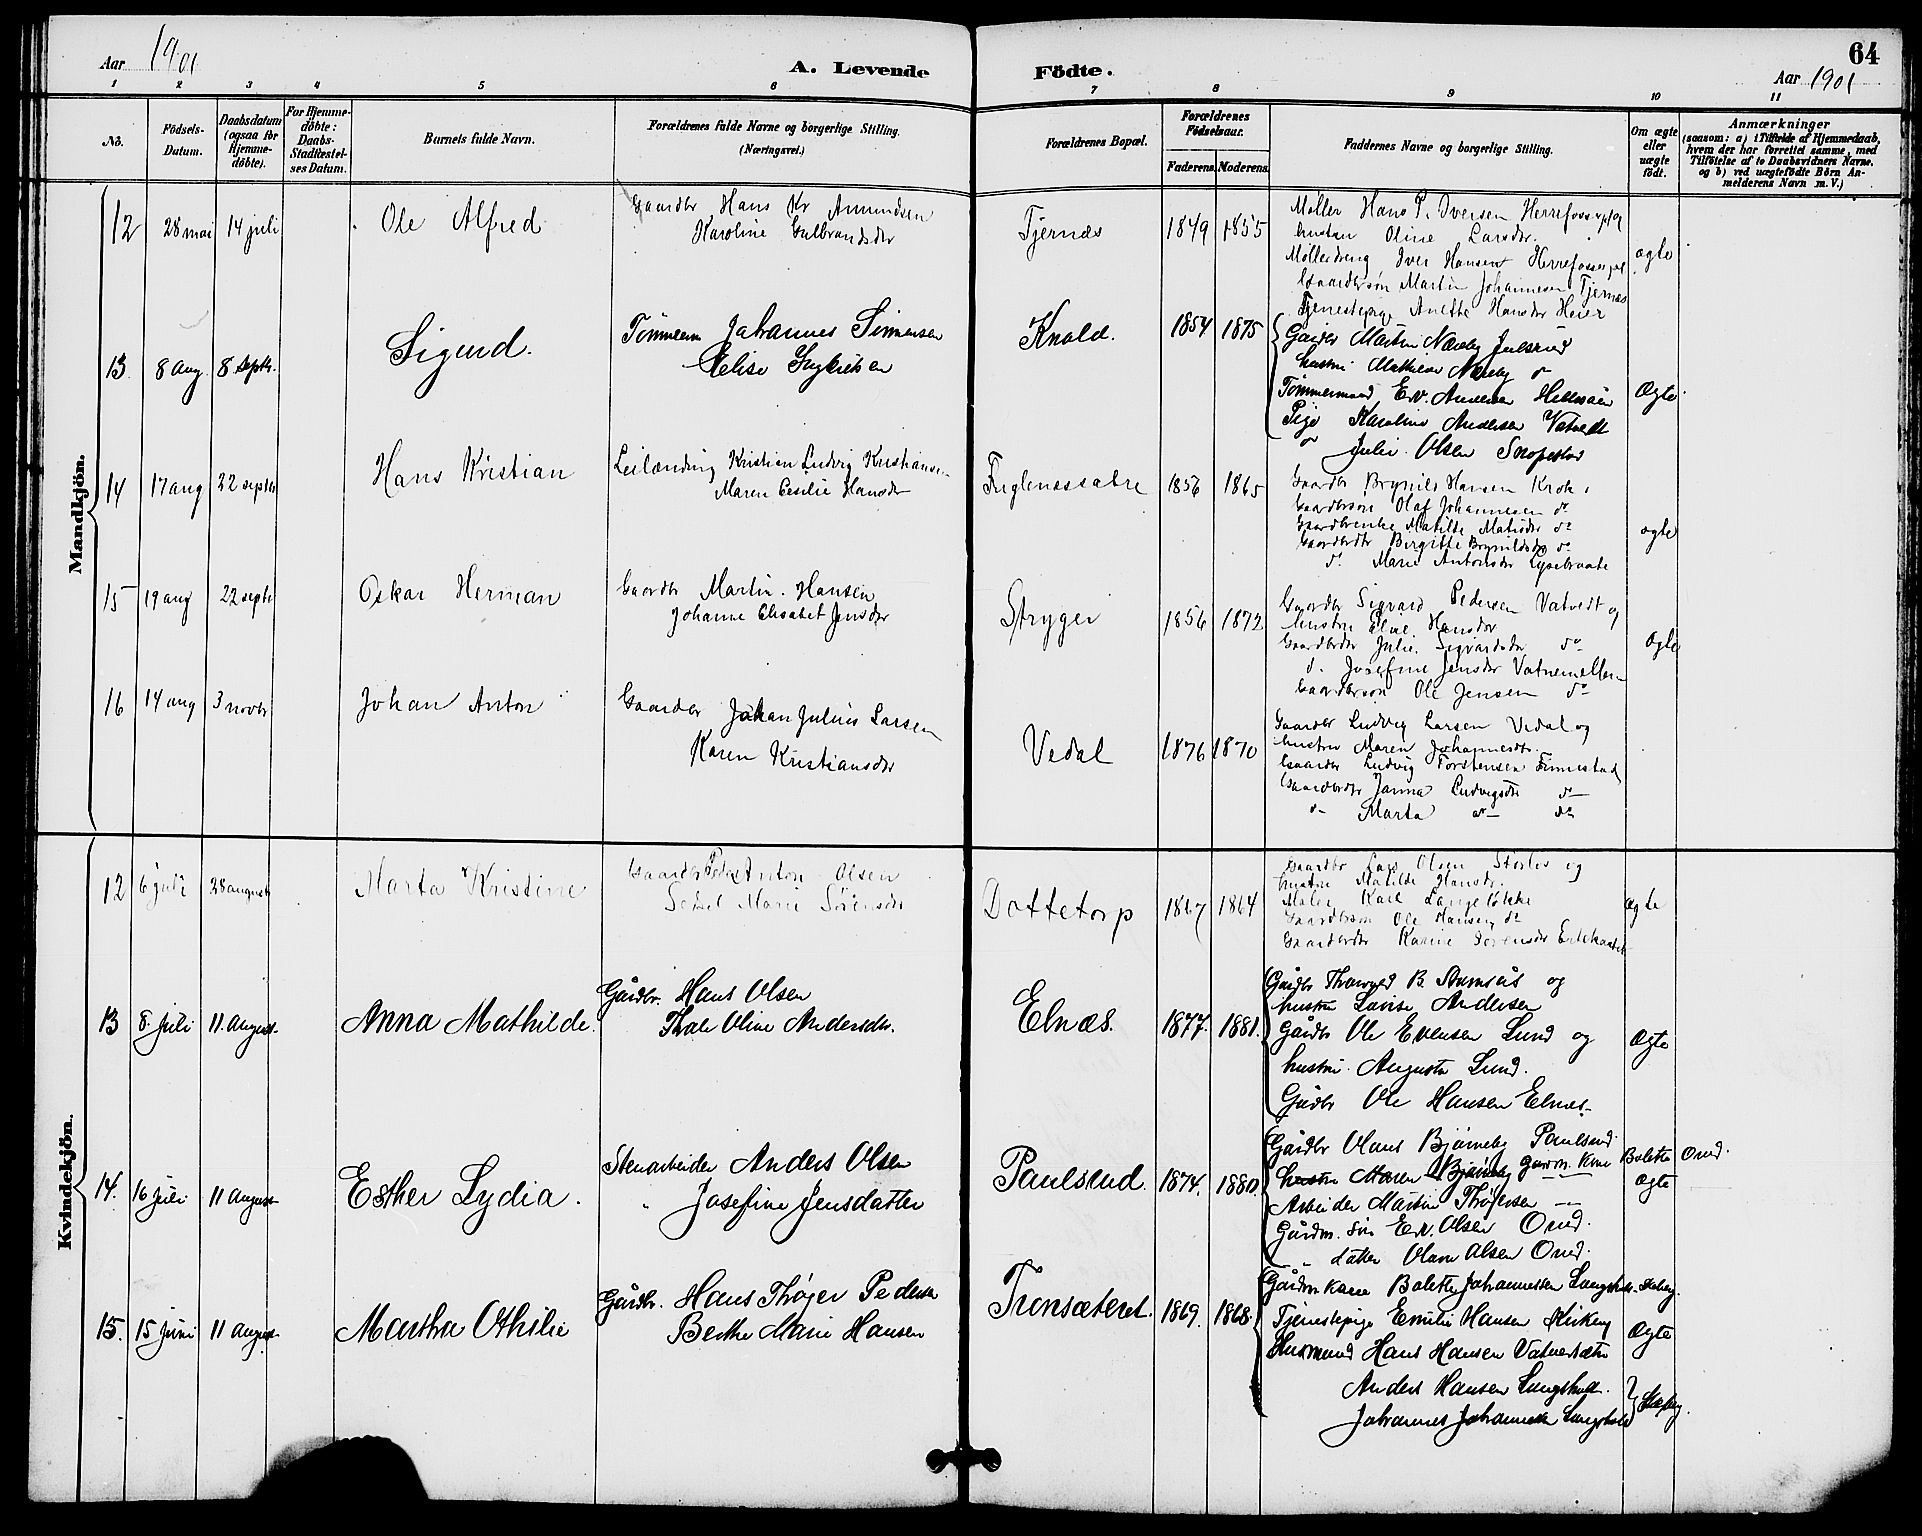 Aar 1901
A. Levende Födte.
64
Aar 1901
1 2 3 4 5 6 7 8 9 10 11
No.
Födsels-Datum.
Daabsdatum (ogsaa for Hjemme-döbte).
For Hjemme-döbte: Daabs-Stadfæstel-ses Datum.
Barnets fulde Navn.
Forældrenes fulde Navne og borgerlige Stilling.
(Næringsvei.)
Forældrenes Bopæl.
Forældrenes Födselsaar.
Faderens. Moderens.
Faddernes Navne og borgerlige Stilling.
Om ægte eller uægte födt.
Anmærkninger
(saasom: a) i Tilfælde af Hjemmedaab,
hvem der har forrettet samme, med
Tilföielse af to Daabsvidners Navne,
og b) ved uægtefödte Börn An-
melderens Navn m. V.)
Mandkjön.
12 28 mai 14 juli Ole Alfred
Gaardbr Hans Kr Amundsen
Karoline Gulbrandsdr
Tjernæs 1849 1855
Møller Hans P. Iversen Herrefoss
hustru Oline Larsdr.
Møllerdreng Iver Hansen
Gaardbrsøn Martin Johannesen Tjernæs
Tjenestepige Anette Hansdr Heier
ægte
13 8 aug. 8 septr. Sigurd.
Johannes Simensen
Elise
Knold. 1854 1875
Gårdbr Martin Næreby Julsrud
hustru Mathilde Næreby do
Tømmermand Edv. Andersen
Pige Karoline Andersen Vatvedt
do Julie Olsen
Ægte
14 17 aug 22 septbr Hans Kristian
Leilænding Kristian Ludvig Kristiansen
Maren Cesilie Hansdr
Fuglenessætre 1856 1865
Gaardbr Brynild Hansen Krok
Gaardbrsøn Olaf Johannesen do
Gaardbrenke Matilde Matisdr do
Gaardbrdtr Birgitte Brynildsdr do
do Marie Antonsdr Lysebraate
ægte
15 19 aug 22 septr Oskar Herman
Gaardbr Martin Hansen
Johanne Elisabet Jensdr
Stryger 1856 1872
Gaardbr Sigvard Pedersen Vatvedt og
hustru Hansdr
Gaardbrdtr Julie Sigvardsdr do
do Josefine Jensdr
Gaardbrsøn Ole Jensen do
ægte
16 14 aug 3 novbr Johan Anton
Gaardbr Johan Julius Larsen
Karen Kristiansdr
Vedal 1876 1870
Gaardbr Ludvig Larsen Vedal og
hustru Maren Johannesdr.
Gaardbr Ludvig Torstensen Finnestad
Gaardbrdtr Janna Ludvigsdtr do
do Marta do do
Kvindekjön.
12 6 juli 28 august Marta Kristine
Gaardbr Peder Anton Olsen
Marie Sørensdr
Dottetorp 1867 1864
Gaardbr Lars Olsen og
hustru Matilde Hansdr.
Maler Karl Langeløkke
Gaardbrsøn Ole Hansen do
Gaardbrdtr Sørensdr
ægte
13 8. juli 11 August. Anna Mathilde.
Gårdbr. Hans Olsen
Thale Oline Andersdtr.
Elnæs. 1877. 1881.
Gårdbr Thorvald B. og
hustru Lovise Andersen
Gårdbr Ole Evensen Lund og
hustru Augusta Lund.
Gårdbr Ole Hansen Elnæs.
Ægte
14. 16 juli 11 August Esther Lydia.
Stenarbeider Anders Olsen
" Josefine Jensdatter
Paulsrud. 1874. 1880.
Gårdbr Olaus Bjørneby Paulsrud.
hustru Maren Bjørneby gårdm. kone Bolette Oud.
Arbeider Martin Thøgersen
Gårdm. søn Edv. Olsen Oud.
" datter Olava Olsen Oud.
Ægte
15. 15 juni 11 August Martha Othilie
Gårdbr. Hans Thøger Pedersen
Berthe Marie Hansen
Tronsæteret. 1869. 1868.
Gårdm. kone Bolette Johannessen
Tjenestepige Emilie Hansen Kirkeng
Husmand Hans Hansen
Anders Hansen
Johannes Johannessen
Ægte